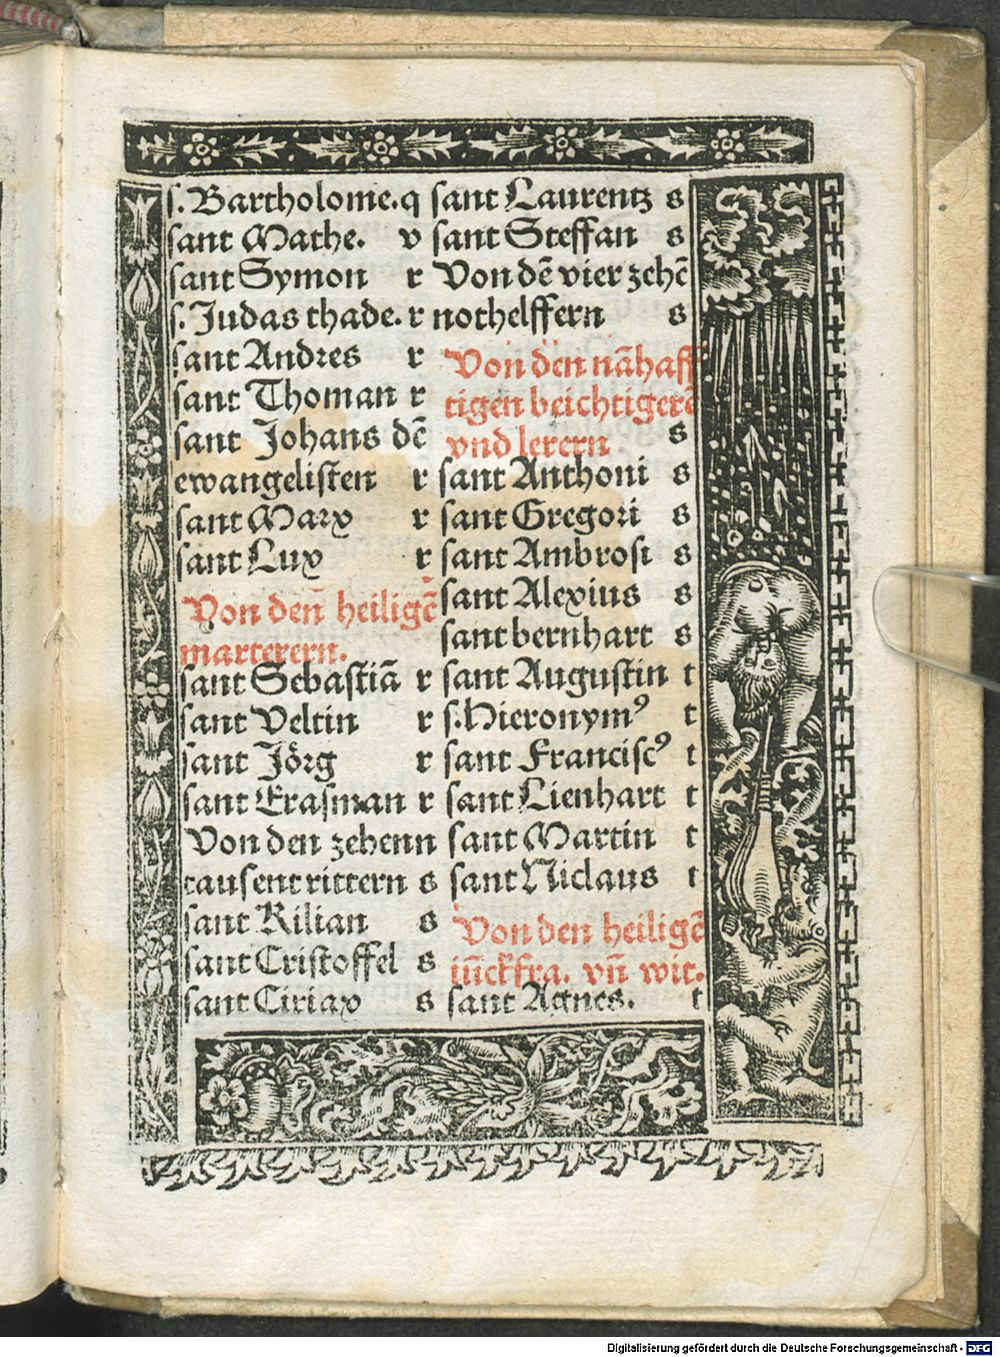 s. Bartholome. q
sant Mathe. v
sant Symon r
s. Judas thade. r
sant Andres r
sant Thoman r
sant Johans dē
ewangelisten r
sant Marx r
sant Lux r
Von den̄ heiligē
marterern.
sant Sebastiā r
sant Veltin r
sant Jörg r
sant Erasman r
Von den zehenn
tausent rittern s
sant Kilian s
sant Cristoffel s
sant Ciriax s
sant Laurentz s
sant Steffan s
Von dē vier zehē
nothelffern s
Von den nāhaff
tigen beichtigerē
vnd lerern s
sant Anthoni s
sant Gregori s
sant Ambrosi s
sant Alexius s
sant bernhart s
sant Augustin t
s. Hieronymꝰ t
sant Franciscꝰ t
sant Lienhart t
sant Martin t
sant Niclaus t
Von den heiligē
iūckfra. vn̄ wit.
sant Agnes. t
Digitalisierung gefördert durch die Deutsche Forschungsgemeinschaft - DFG